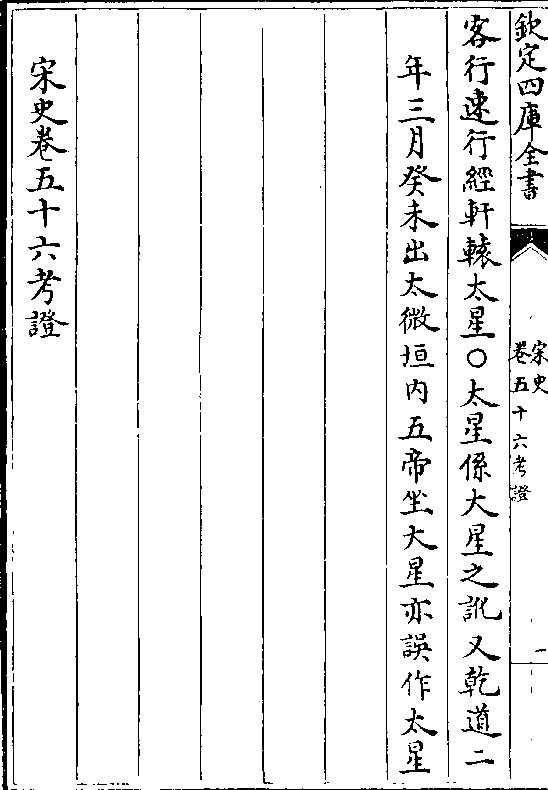 欽定四庫全書
宋史
卷五十六考證
一
客行速行經軒轅太星〇太星係大星之訛又乾道二
年三月癸未出太微垣内五帝坐大星亦誤作太星
宋史卷五十六考證